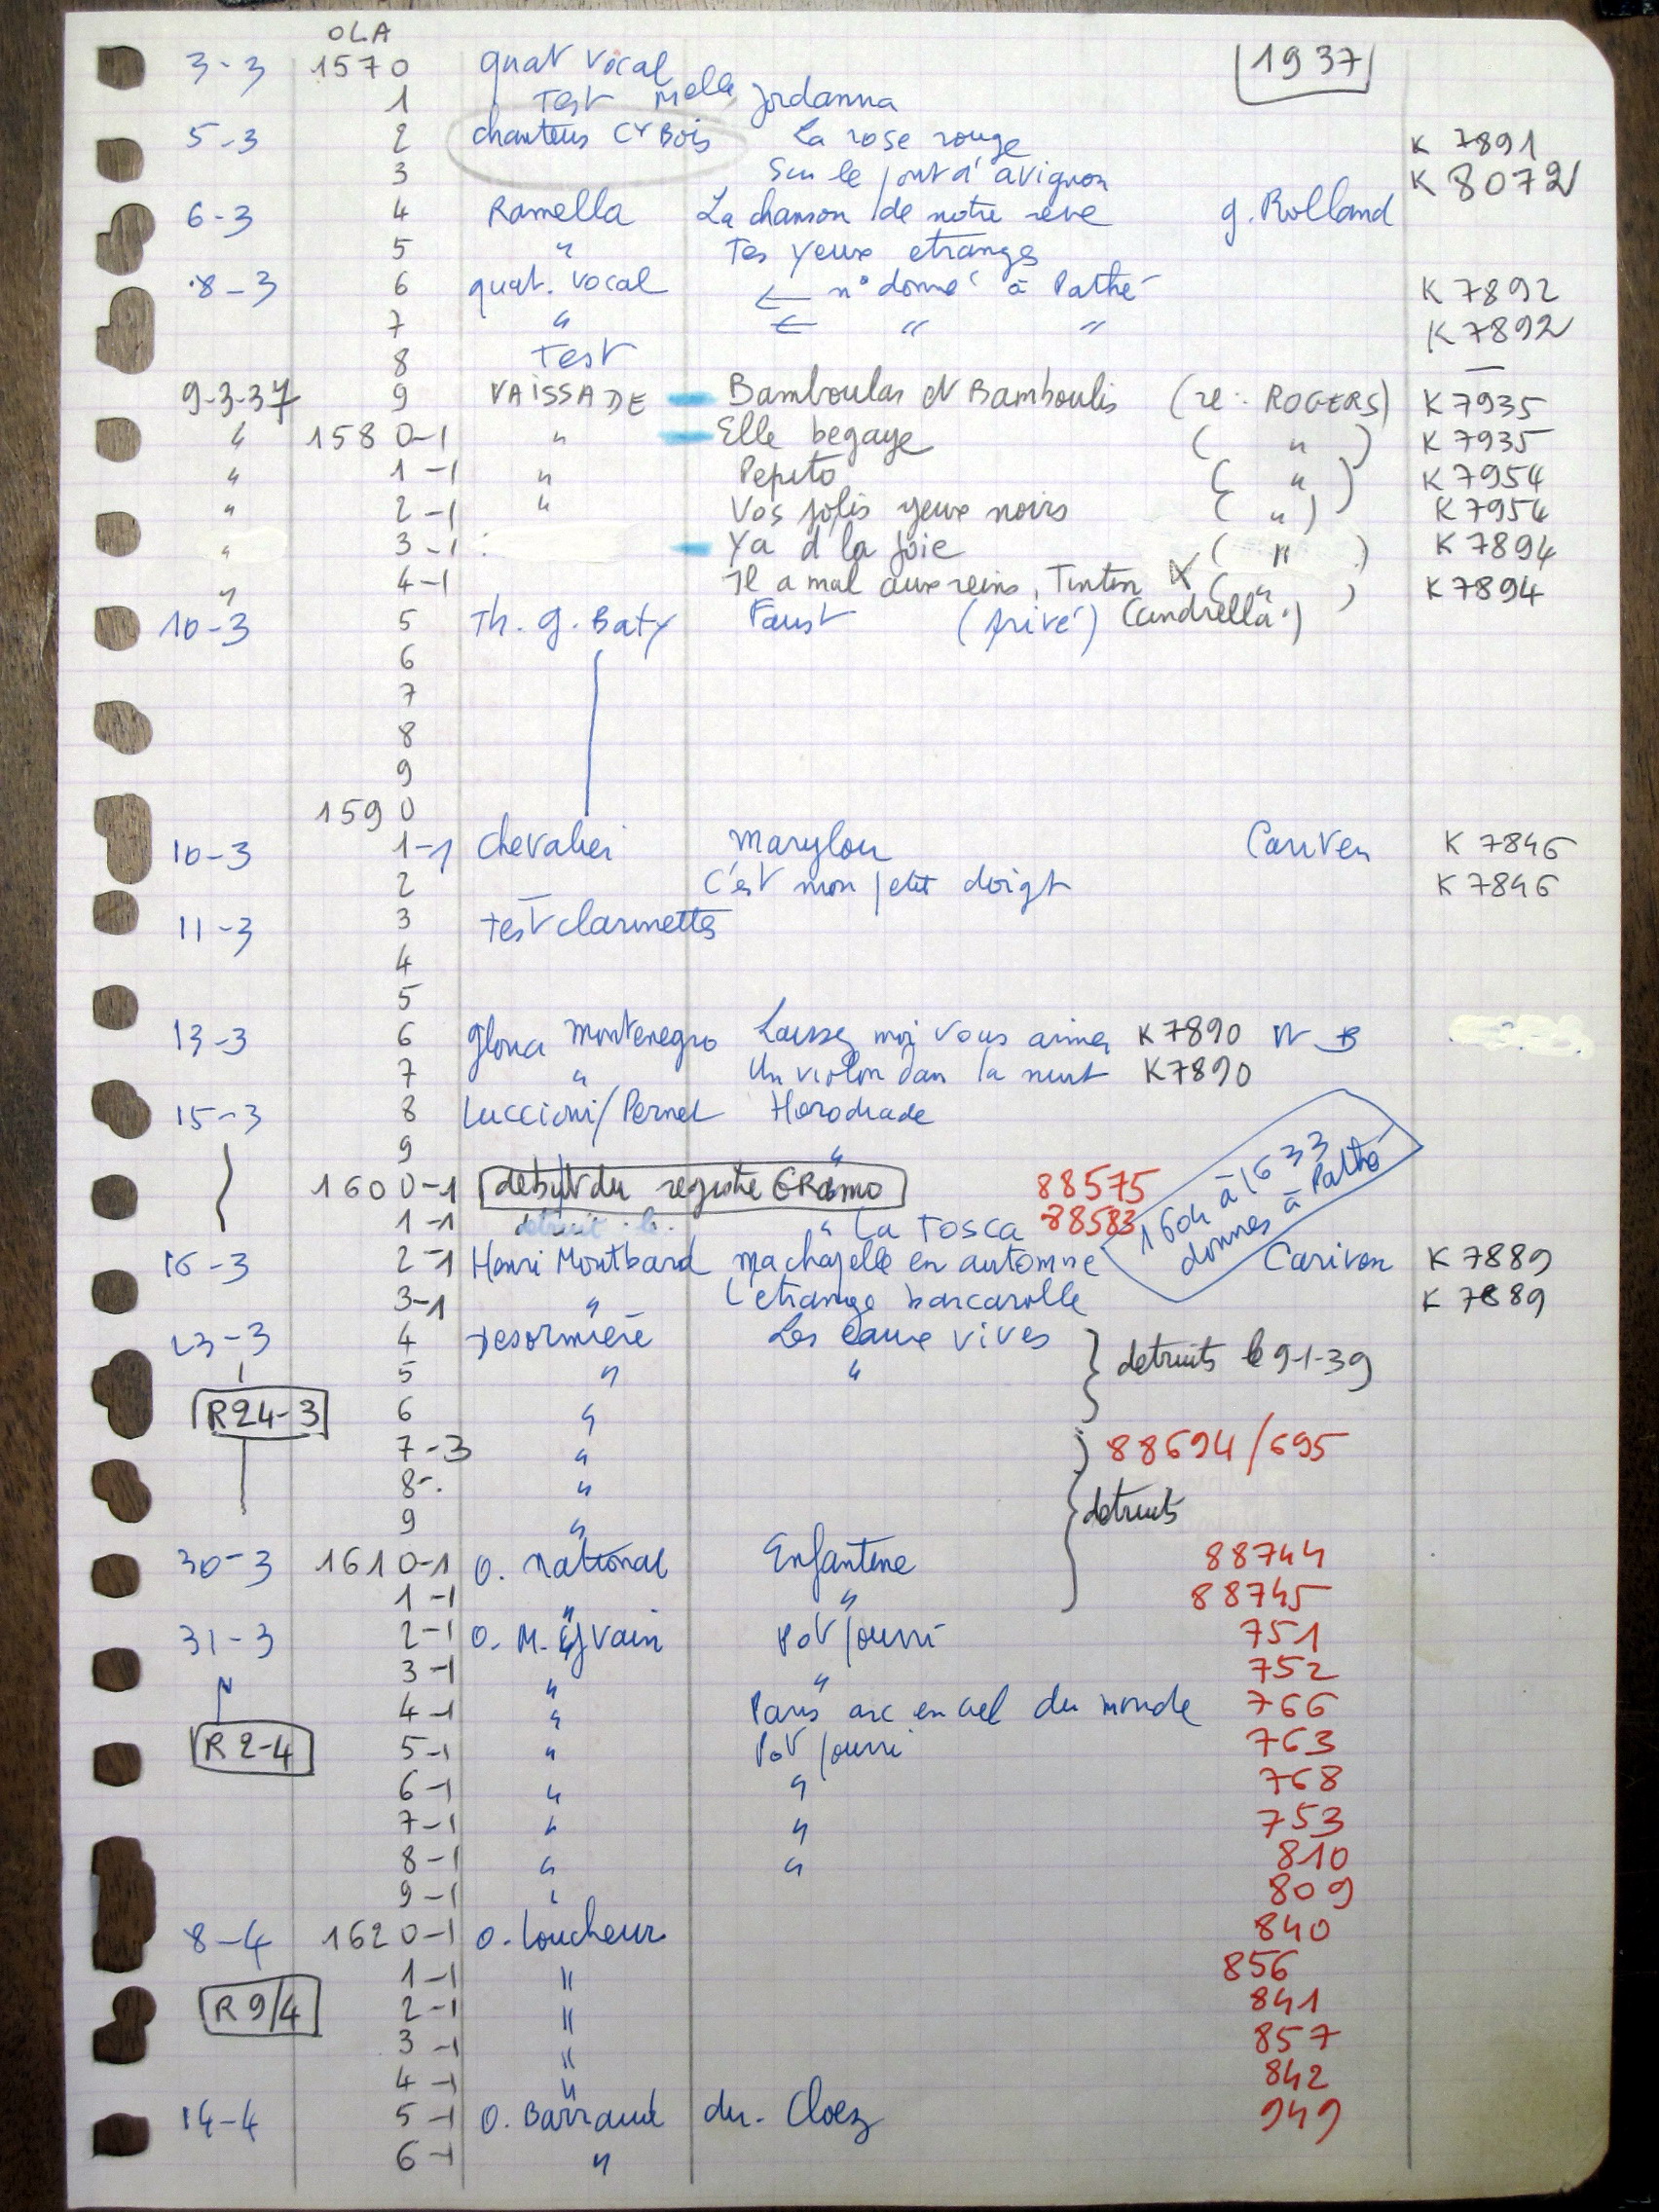 OLA
3-3 1570 quat vocal 1937
1 Test Melle Jordanna
5-3 2 chanteurs Cx Bois La rose rouge K 7891
3 Sur le pont d'avignon K 8072
6-3 4 Ramella La chanson de notre reve g. Rolland
5 " Tes yeux etranges
8-3 6 quat. vocal ← n° donné à Pathé K 7892
7 " ← " " K 7892
8 Test —
9-3-37 9 VAISSADE Bamboulas et Bamboulis (re: ROGERS) K 7935
" 1580-1 " Elle begaye ( " ) K 7935
" 1-1 " Pepito ( " ) K 7954
" 2-1 " Vos jolis yeux noirs ( " ) K 7954
" 3-1 Ya d'la joie ( " ) K 7894
" 4-1 Il a mal aux reins, Tintin X ( " ) K 7894
10-3 5 Th. g. Baty Faust (privé) (andrella)
6
7
8
9
1590
10-3 1-1 chevalier Marylou Cariven K 7846
2 C'est mon petit doigt K 7846
11-3 3 Test clarinettes
4
5
13-3 6 gloria Montenegro Laissez moi vous aimer K 7890
7 " Un violon dans la nuit K7890
15-3 8 Luccioni/Pernet Herodiade
9 "
1600-1 debut du registre GRamo " 88575
1-1 detruit le " La Tosca 88583
1604 à 1633 donnés à Pathé
16-3 2-1 Henri Montbard ma chapelle en automne Cariven K 7889
3-1 " L'etrange barcarolle K 7889
23-3 4 Desormière Les eaux vives
5 " " detruits le 9-1-39
R24-3 6 "
7-3 " 88694/695
8-. "
9 " detruits
30-3 1610-1 O. national Enfantine 88744
1-1 " " 88745
31-3 2-1 O. M. Yvain Pot pourri 751
3-1 " " 752
4-1 " Paris arc en ciel du monde 766
R 2-4 5-1 " Pot pourri 763
6-1 " " 768
7-1 " " 753
8-1 " " 810
9-1 " 809
8-4 1620-1 O. Loucheur 840
1-1 " 856
R 9/4 2-1 " 841
3-1 " 857
4-1 " 842
14-4 5-1 O. Barraud du. Cloez 949
6-1 "